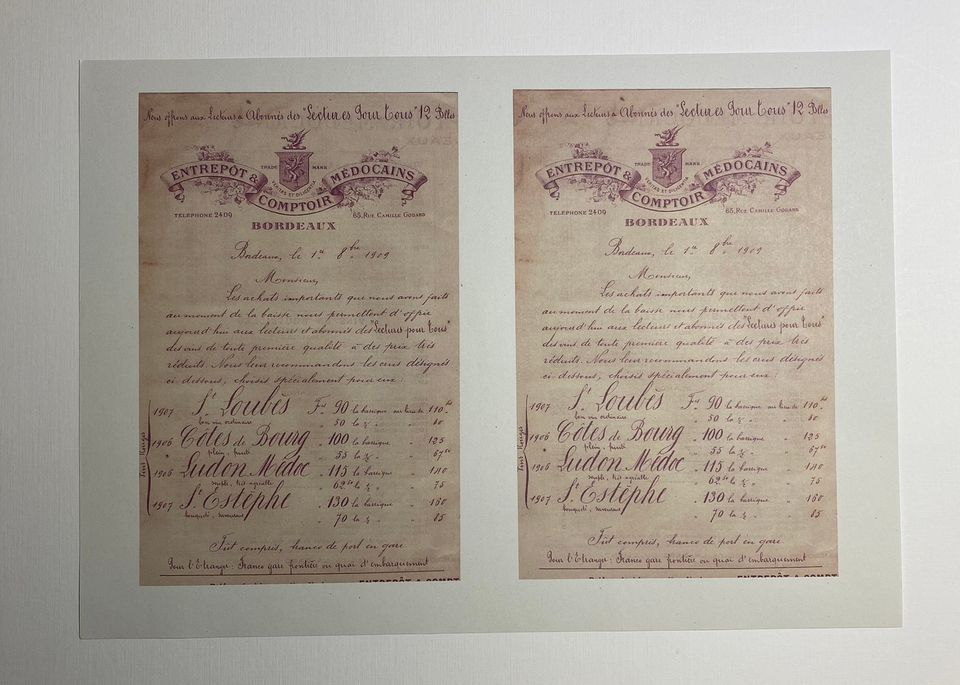 Nous offrons aux Lecteurs & Abonnés des "Lectures Pour Tous" 12
ENTREPÔT &
TRADE MARK
MÉDOCAINS
COMPTOIR
TELEPHONE 2409
65, RUE CAMILLE GODARD
BORDEAUX
Bordeaux, le 1er 8bre 1909
Monsieur,
Les achats importants que nous avons faits
au moment de la baisse nous permettent d'offrir
aujourd'hui aux lecteurs et abonnés des "Lectures pour Tous"
des vins de toute première qualité à des prix très
réduits. Nous leur recommandons les crus désignés
ci dessous, choisis spécialement pour eux :
Vins Rouges
1907 St Loubès Frs 90 la barrique au lieu de 110
bon vin ordinaire 50 la ½ 60
1906 Côtes de Bourg 100 la barrique 125
plein, fruité 55 la ½ 67 50
Ludon Médoc 115 la barrique 140
souple, très agréable 62 50 la ½ 75
1907 St Estèphe 130 la barrique 160
bouqueté, 70 la ½ 85
Fût compris, franco de port en gare
Pour l'Etranger : Franco gare frontière ou quai d'embarquement
ENTREPÔT & COMPT
Nous offrons aux Lecteurs & Abonnés des "Lectures Pour Tous" 12
ENTREPÔT &
TRADE MARK
MÉDOCAINS
COMPTOIR
TELEPHONE 2409
65, RUE CAMILLE GODARD
BORDEAUX
Bordeaux, le 1er 8bre 1909
Monsieur,
Les achats importants que nous avons faits
au moment de la baisse nous permettent d'offrir
aujourd'hui aux lecteurs et abonnés des "Lectures pour Tous"
des vins de toute première qualité à des prix très
réduits. Nous leur recommandons les crus désignés
ci dessous, choisis spécialement pour eux :
Vins Rouges
1907 St Loubès Frs 90 la barrique au lieu de 110
bon vin ordinaire 50 la ½ 60
1906 Côtes de Bourg 100 la barrique 125
plein, fruité 55 la ½ 67 50
Ludon Médoc 115 la barrique 140
souple, très agréable 62 50 la ½ 75
1907 St Estèphe 130 la barrique 160
bouqueté, 70 la ½ 85
Fût compris, franco de port en gare
Pour l'Etranger : Franco gare frontière ou quai d'embarquement
ENTREPÔT & COMPT